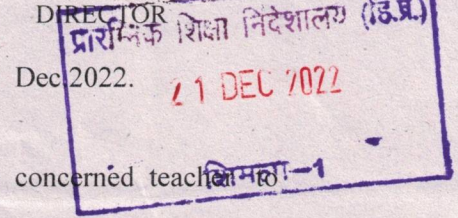 DIRECTOR
प्रारम्भिक शिक्षा निदेशालय (हि.प्र.)
Dec.2022.
21 DEC 2022
concerned teacher to
शिमला-1